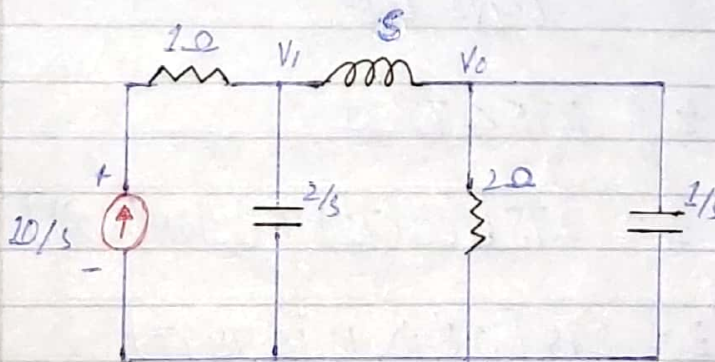 1Ω
V1
S
V0
+
10/s
-
2/s
2Ω
1/s